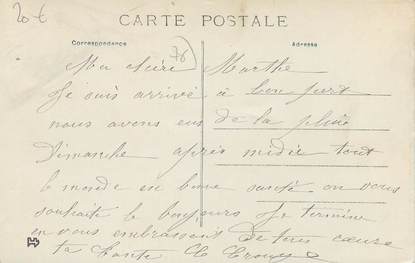 20 €
CARTE POSTALE
Correspondance
Adresse
78
Ma chère Marthe
Je suis arrivé à bon port
nous avons eus de la pluie
Dimanche après midie tout
le monde en bone santé on vous
souhaite le bonjours Je termine
en vous embrassent de tous cœurs
ta tante